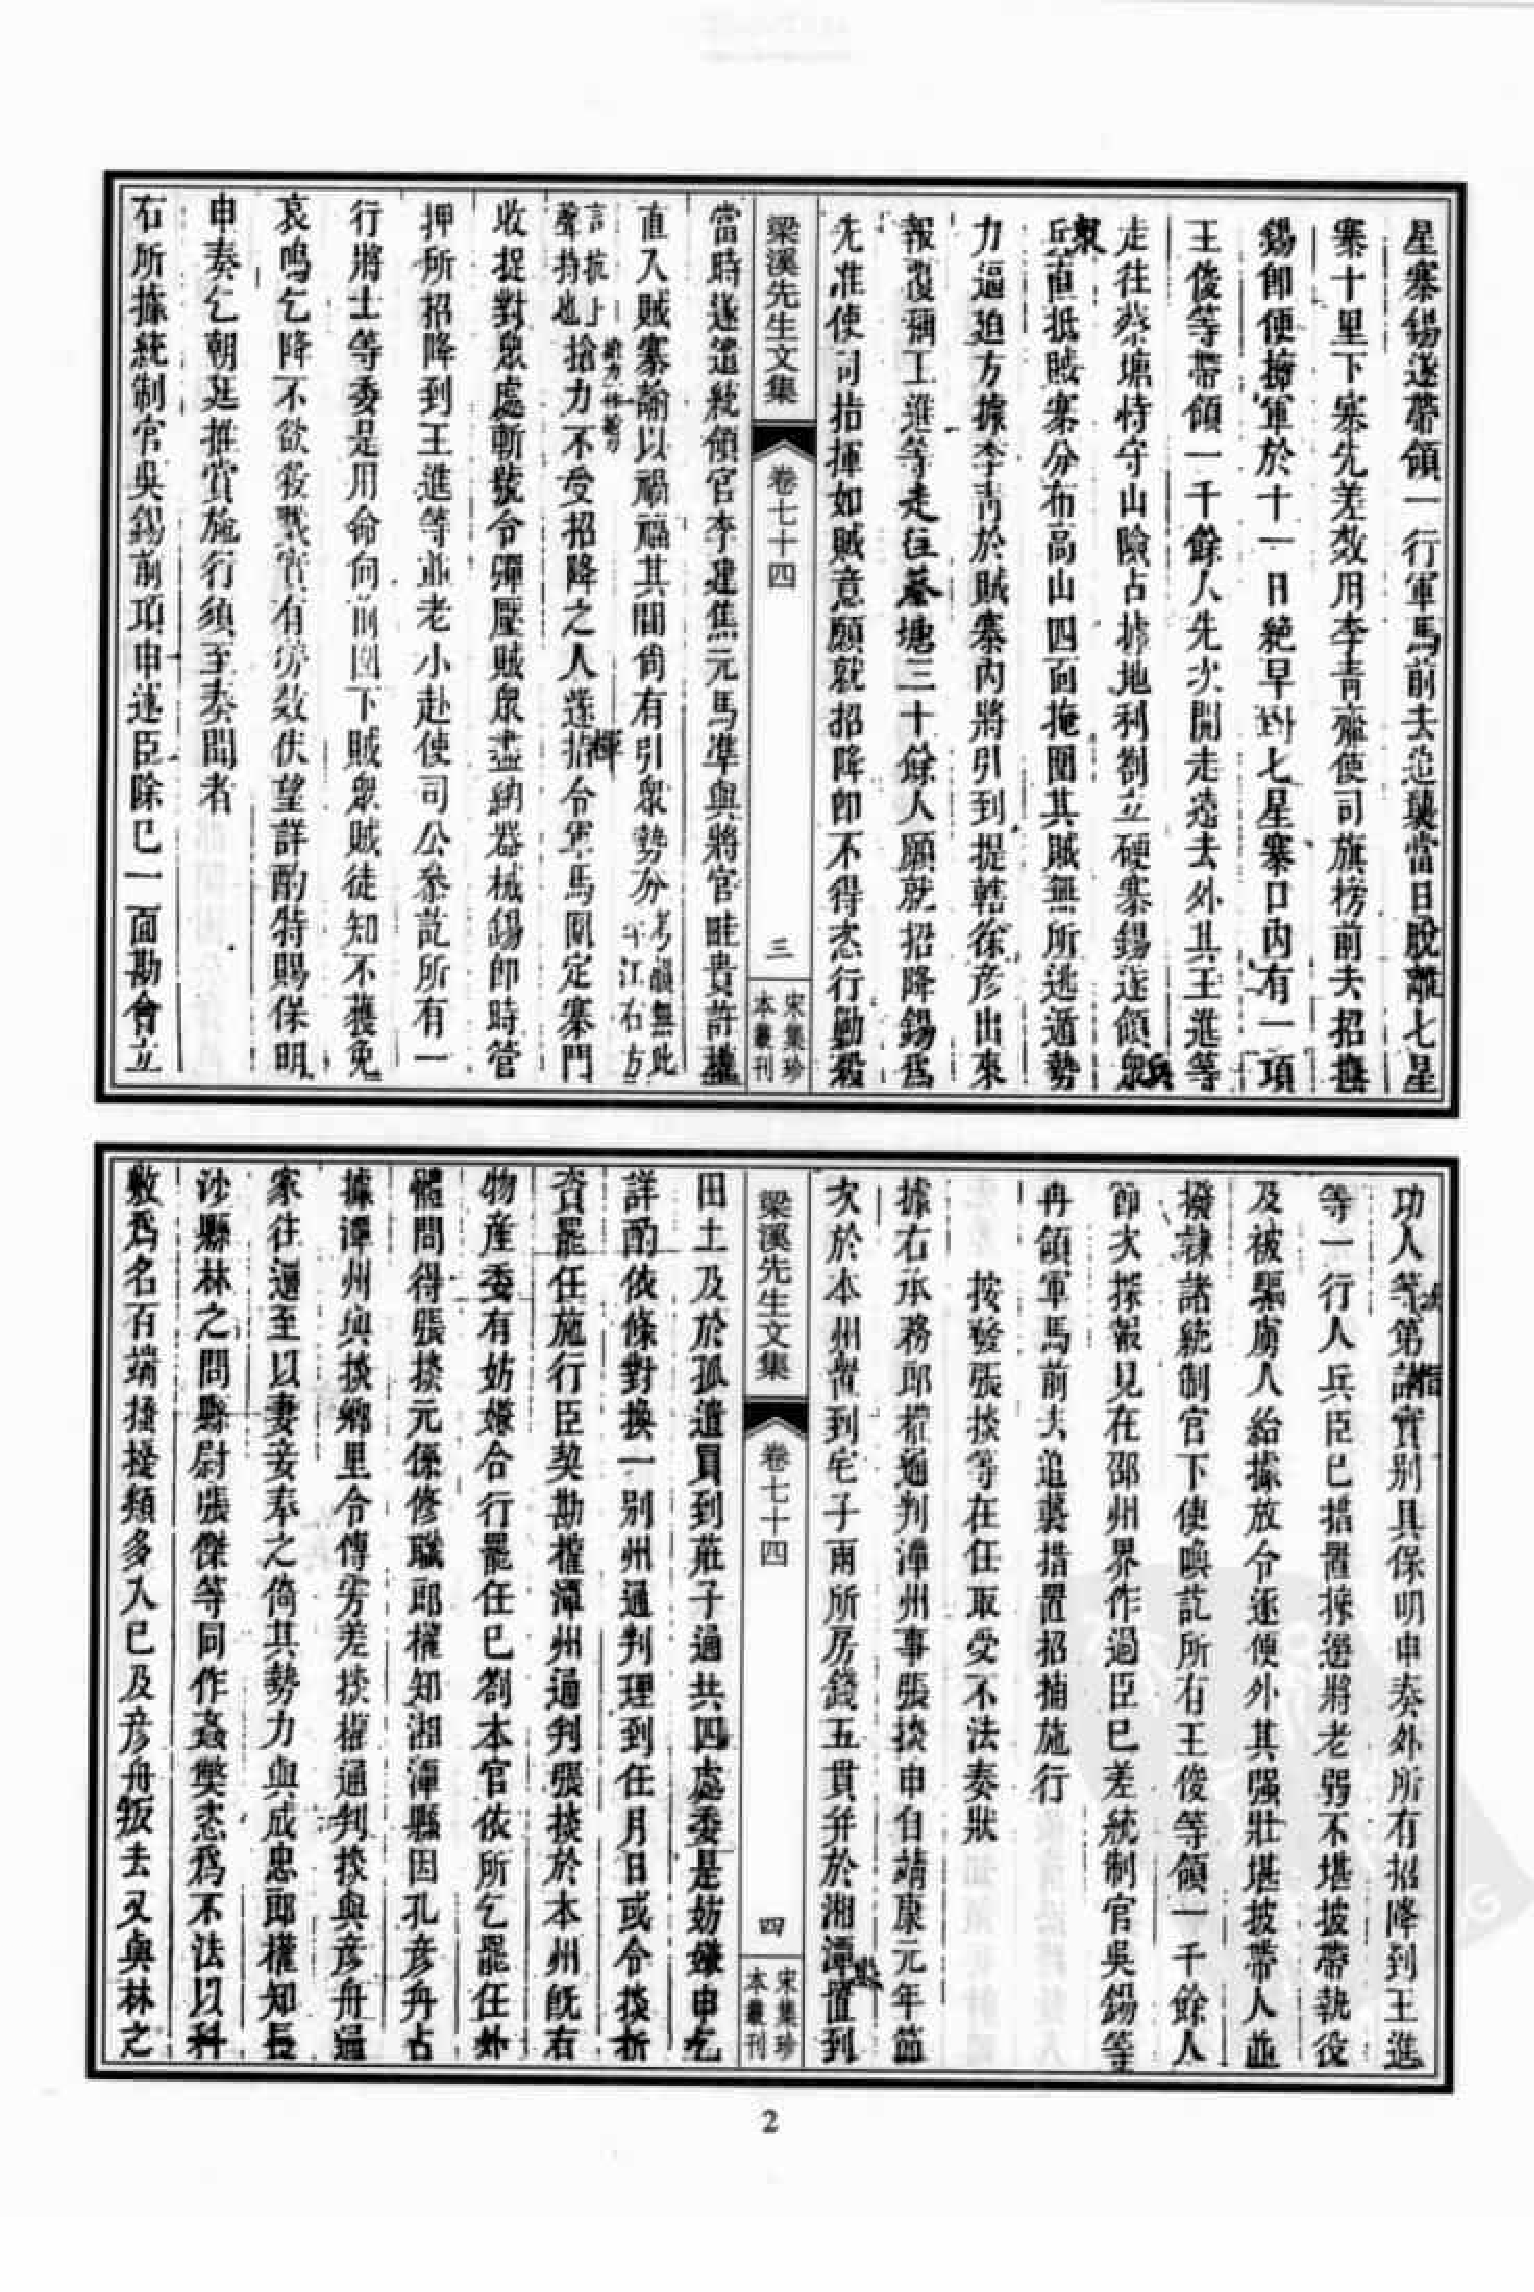 星寨錫遂帶領一行軍馬前去追襲當日脫離七星
寨十里下寨先差效用李青齎使司旗榜前去招撫
錫即便擁軍於十一日絕早到七星寨口內有一項
王俊等帶領一千餘人先次開走遠去外其王進等
走往蔡塘恃守山險占據地利劄立硬寨錫遂領衆
兵直抵賊寨分布高山四面掩圍其賊無所逃遁勢
力逼迫方據李青於賊寨內將引到提轄徐彥出來
報覆稱王進等走往蔡塘三十餘人願就招降錫爲
先准使司指揮如賊意願就招降即不得恣行勦殺
梁溪先生文集
卷七十四
三
宋集珍
本叢刊
當時遂遣統領官李建焦元馬準與將官眭貴許權
直入賊寨諭以禍福其間尚有引衆勢分考韻無此
字江右方
言抗上
聲持也
搶力不受招降之人遂指令軍馬圍定寨門
收捉對衆處斬號令彈壓賊衆盡納器械錫即時管
押所招降到王進等並老小赴使司公叅訖所有一
行將士等委是用命向前圍下賊衆賊徒知不獲免
哀鳴乞降不欲殺戮實有勞效伏望詳酌特賜保明
申奏乞朝廷推賞施行須至奏聞者
右所據統制官吳錫前項申述臣除已一面勘會立
功人等第詣實别具保明申奏外所有招降到王進
等一行人兵臣已措置揀選將老弱不堪披帶執役
及被驅虜人給據放令逐便外其强壯堪披帶人並
撥隸諸統制官下使喚訖所有王俊等領一千餘人
節次探報見在邵州界作過臣已差統制官吳錫等
再領軍馬前去追襲措置招捕施行
按發張掞等在任取受不法奏狀
據右承務郎權通判潭州事張掞申自靖康元年節
次於本州置到宅子兩所房錢五貫并於湘潭置到
梁溪先生文集
卷七十四
四
宋集珍
本叢刊
田土及於孤遺買到莊子過共四處委是妨嫌申乞
詳酌依條對換一别州通判理到任月日或令掞折
資罷任施行臣契勘權潭州通判張掞於本州既有
物產委有妨嫌合行罷任已劄本官依所乞罷任外
體問得張掞元係修職郎權知湘潭縣因孔彥舟占
據潭州與掞鄉里令傅雱差掞權通判掞與彥舟通
家往還至以妻妾奉之倚其勢力與成忠郎權知長
沙縣林之問縣尉張傑等同作姦弊恣爲不法以科
敷爲名百端搔擾類多入已及彥舟叛去又與林之
2